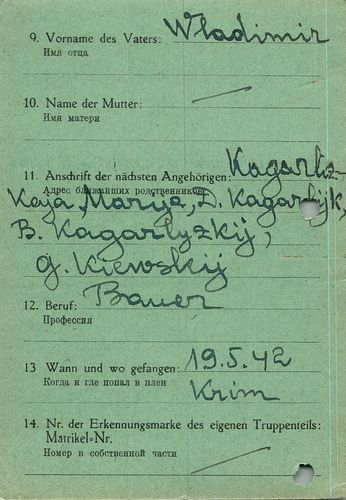 9. Vorname des Vaters: Wladimir
Имя отца
10. Name der Mutter: —
Имя матери
11. Anschrift der nächsten Angehörigen: Kagarliz-
Адрес ближайших родственников
Kaja Marija, D. Kagarlijk,
B. Kagarlyzkij,
G. Kiewskij
12. Beruf: Bauer
Профессия
13 Wann und wo gefangen: 19.5.42
Когда и где попал в плен
Krim
14. Nr. der Erkennungsmarke des eigenen Truppenteils:
Matrikel=Nr.
Номер в собственной части —